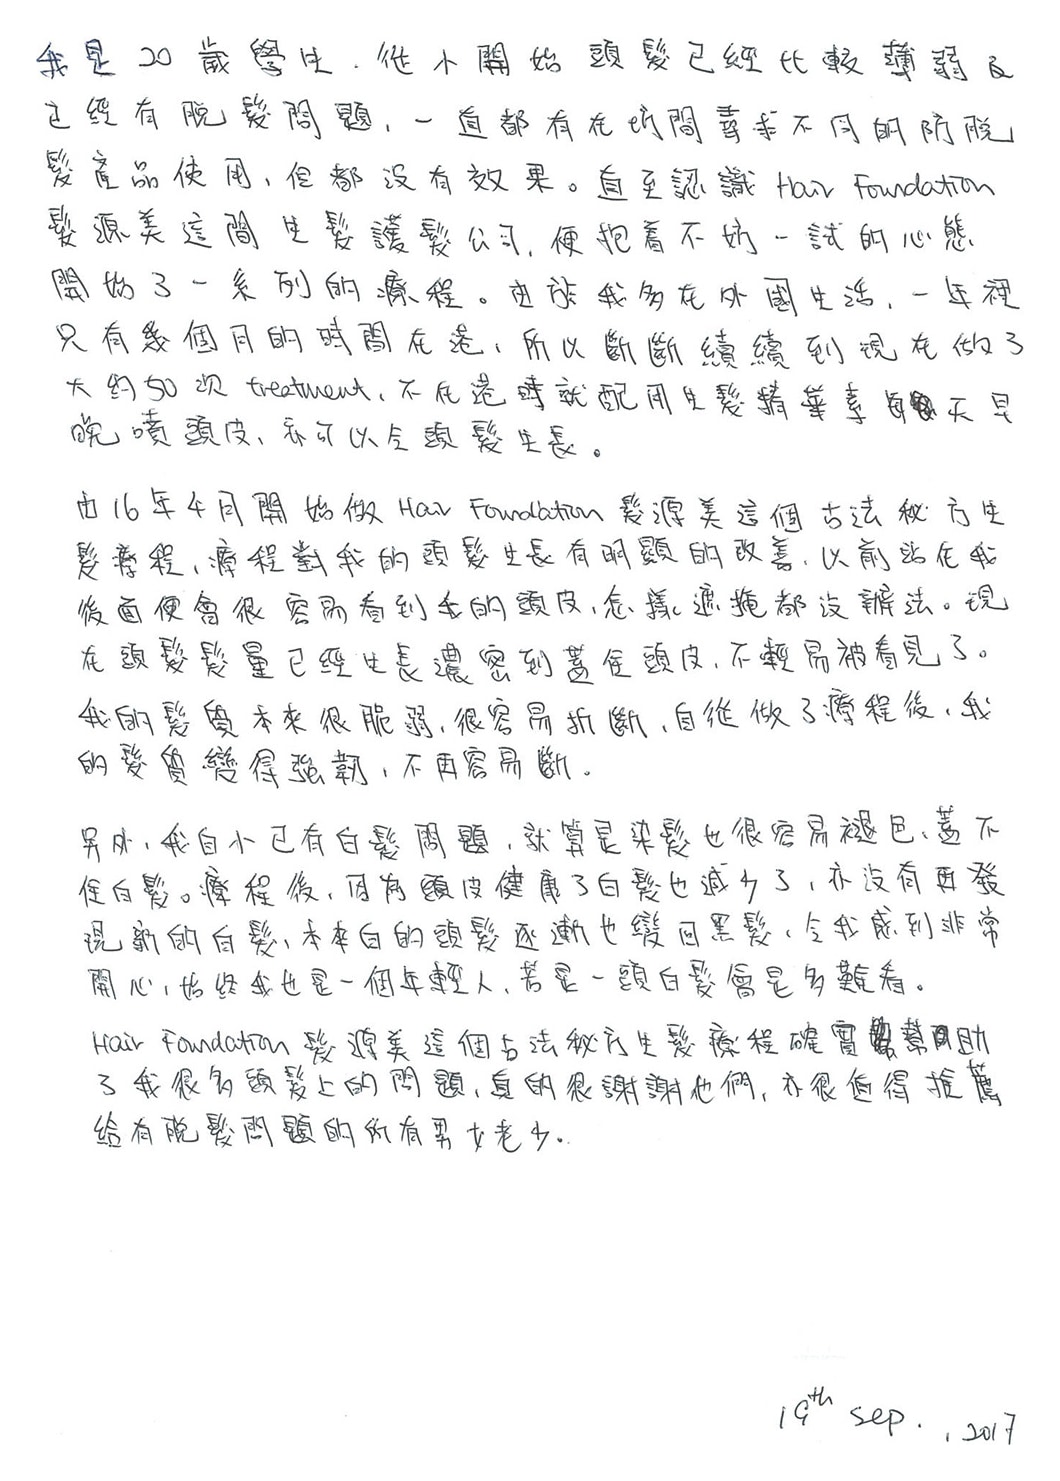 我是20歲學生．從小開始頭髮已經比較薄弱及
已經有脫髮問題，一直都有在坊間尋求不同的防脫
髮產品使用，但都沒有效果。直至認識 Hair Foundation
髮源美這間生髮護髮公司，便抱着不妨一試的心態
開始了一系列的療程。由於我多在外國生活，一年裡
只有幾個月的時間在港，所以斷斷續續到現在做了
大約50次 treatment，不在港時就配用生髮精華素每天早
晚噴頭皮，亦可以令頭髮生長。
由16年4月開始做 Hair Foundation 髮源美這個古法秘方生
髮療程，療程對我的頭髮生長有明顯的改善，以前站在我
後面便會很容易看到我的頭皮，怎樣遮掩都沒辦法。現
在頭髮髮量已經生長濃密到蓋住頭皮，不輕易被看見了。
我的髮質本來很脆弱，很容易折斷，自從做了療程後，我
的髮質變得強韌，不再容易斷。
另外，我自小已有白髮問題，就算是染髮也很容易褪色，蓋不
住白髮。療程後，因為頭皮健康了白髮也減少了，亦沒有再發
現新的白髮，本來白的頭髮逐漸也變回黑髮，令我感到非常
開心，始終我也是一個年輕人，若是一頭白髮會是多難看。
Hair Foundation 髮源美這個古法秘方生髮療程確實幫助
了我很多頭髮上的問題，真的很謝謝他們，亦很值得推薦
給有脫髮問題的所有男女老少。
19th sep. , 2017